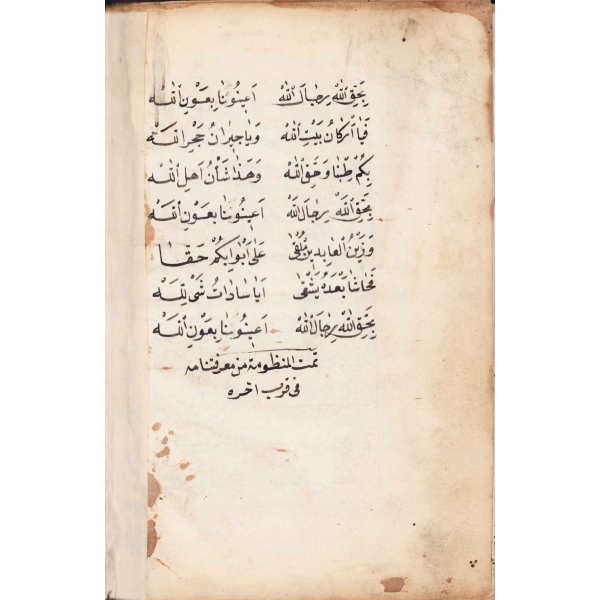 بِحَقِّ اللّٰهِ رِجَالَ اللّٰهِ اَعِينُونَا بِعَوْنِ اللّٰهِ
فَيَا اَرْكَانُ بَيْتِ اللّٰهِ وَيَا جِيرَانُ حَجْرِ اللّٰهِ
بِكُمْ طِبْنَا وَحَقِّ اللّٰهِ وَهَذَا شَأْنُ اَهْلِ اللّٰهِ
بِحَقِّ اللّٰهِ رِجَالَ اللّٰهِ اَعِينُونَا بِعَوْنِ اللّٰهِ
وَزَيْنُ الْعَابِدِينَ مُلْقٰى عَلٰى اَبْوَابِكُمْ حَقًّا
فَحَاشَا بَعْدَهُ يَشْقٰى اَيَا سَادَاتُ شَىْ لِلّٰهِ
بِحَقِّ اللّٰهِ رِجَالَ اللّٰهِ اَعِينُونَا بِعَوْنِ اللّٰهِ
تمت المنظومة من معرفتنامه
فى قرب اخره